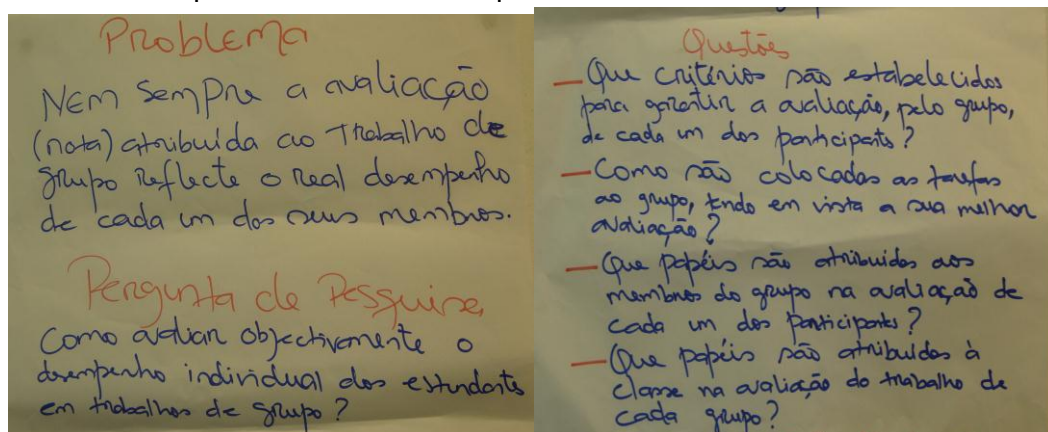 Problema
Nem sempre a avaliação
(nota) atribuída ao Trabalho de
grupo reflecte o real desempenho
de cada um dos seus membros.
Pergunta de Pesquisa
Como avaliar objectivamente o
desempenho individual dos estudantes
em trabalhos de grupo?
Questões
— Que critérios são estabelecidos
para garantir a avaliação, pelo grupo,
de cada um dos participants?
— Como são colocadas as tarefas
ao grupo, tendo em vista a sua melhor
avaliação?
— Que papéis são atribuidos aos
membros do grupo na avaliação de
cada um dos participants?
— Que papéis são atribuídos à
classe na avaliação do trabalho de
cada grupo?